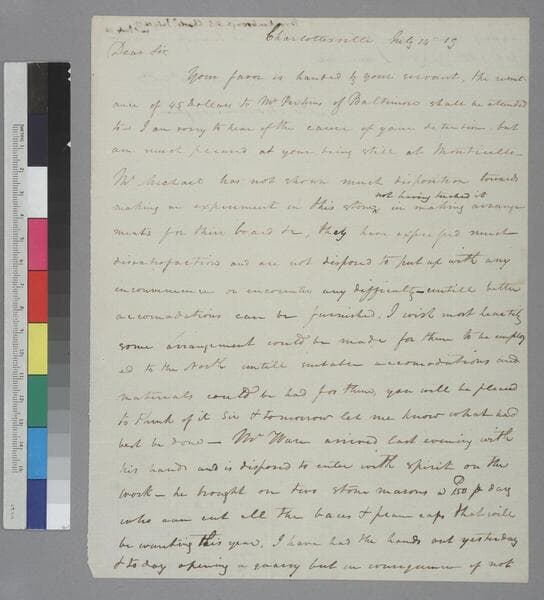 Charlottesville July 14 19
Dear Sir
Your favor is handed by your servant, the remit-
ance of 45 Dollars to Mr Perkins of Baltimore shall be attended
to. I am sorry to hear of the cause of your detention. but
am much pleased at your being still at Monticello
Mr Michael has not shown much disposition towards
not having touched it
making an experiment in this stone, in making arrange
ments for their board &c, they have expressed much
dissatisfaction and are not disposed to put up with any
inconvenience or encounter any difficulty untill better
accomodations can be furnished. I wish most heartily
some arrangement could be made for them to be employ
ed to the North untill suitable accomodations and
materials could be had for them, you will be pleased
to think of it Sir & tomorrow let me know what had
best be done — Mr Ware arrived last evening with
his hands and is disposed to enter with spirit on the
work — he brought on two stone masons day
who can cut all the bases & plain caps that will
be wanting this year. I have had the hands out yesterday
& to day opening a quarry but in consequence of not